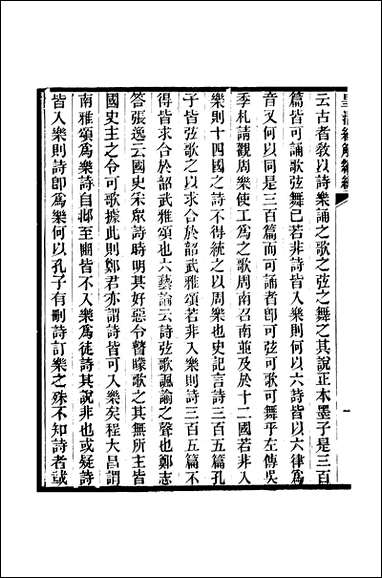 皇清經解續編
云古者敎以詩樂誦之歌之弦之舞之其說正本墨子是三百
篇皆可誦歌弦舞已若非詩皆入樂則何以六詩皆以六律爲
音又何以同是三百篇而可誦者卽可弦可歌可舞乎左傳吳
季札請觀周樂使工爲之歌周南召南並及於十二國若非入
樂則十四國之詩不得統之以周樂也史記言詩三百五篇孔
子皆弦歌之以求合於韶武雅頌若非入樂則詩三百五篇不
得皆求合於韶武雅頌也六藝論云詩弦歌諷諭之聲也鄭志
答張逸云國史宋眾詩時明其好惡令瞽矇歌之其無所主皆
國史主之令可歌據此則鄭君亦謂詩皆可入樂矣程大昌謂
南雅頌爲樂詩自邶至豳皆不入樂爲徒詩其說非也或疑詩
皆入樂則詩卽爲樂何以孔子有刪詩訂樂之殊不知詩者載
一